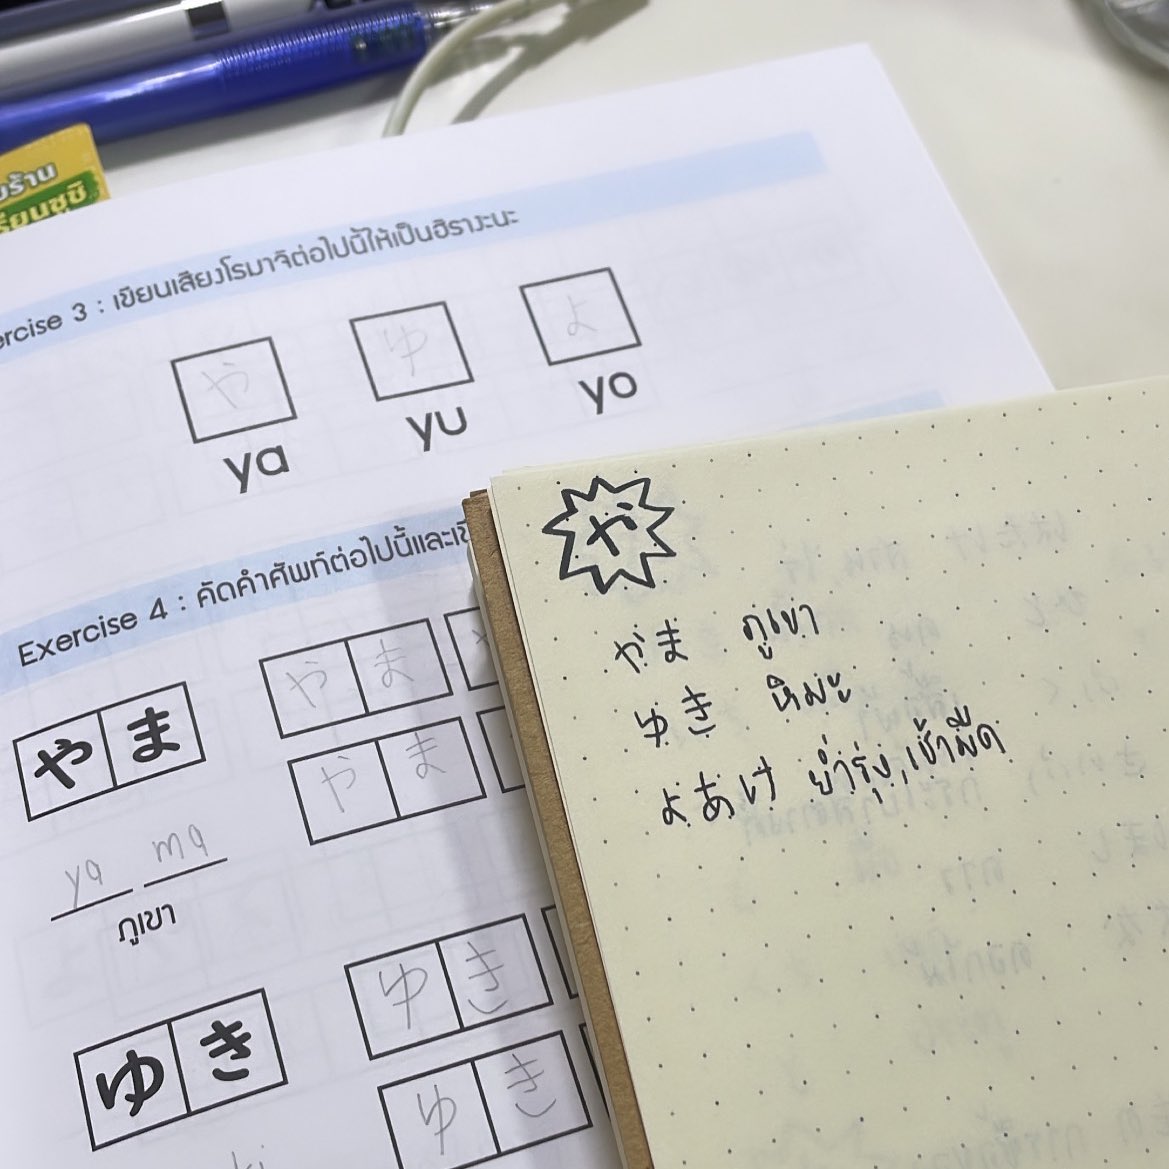 บร้าน
รียนซูชิ
ercise 3 : เขียนเสียงโรมาจิต่อไปนี้ให้เป็นฮิรางะนะ
や ゆ よ
ya yu yo
Exercise 4 : คัดคำศัพท์ต่อไปนี้และเขี
や ま や ま
や ま
ya ma
ภูเขา
ゆ き ゆ き
ゆ き
ki
や
やま ภูเขา
ゆき หิมะ
よあけ ย่ำรุ่ง, เช้ามืด